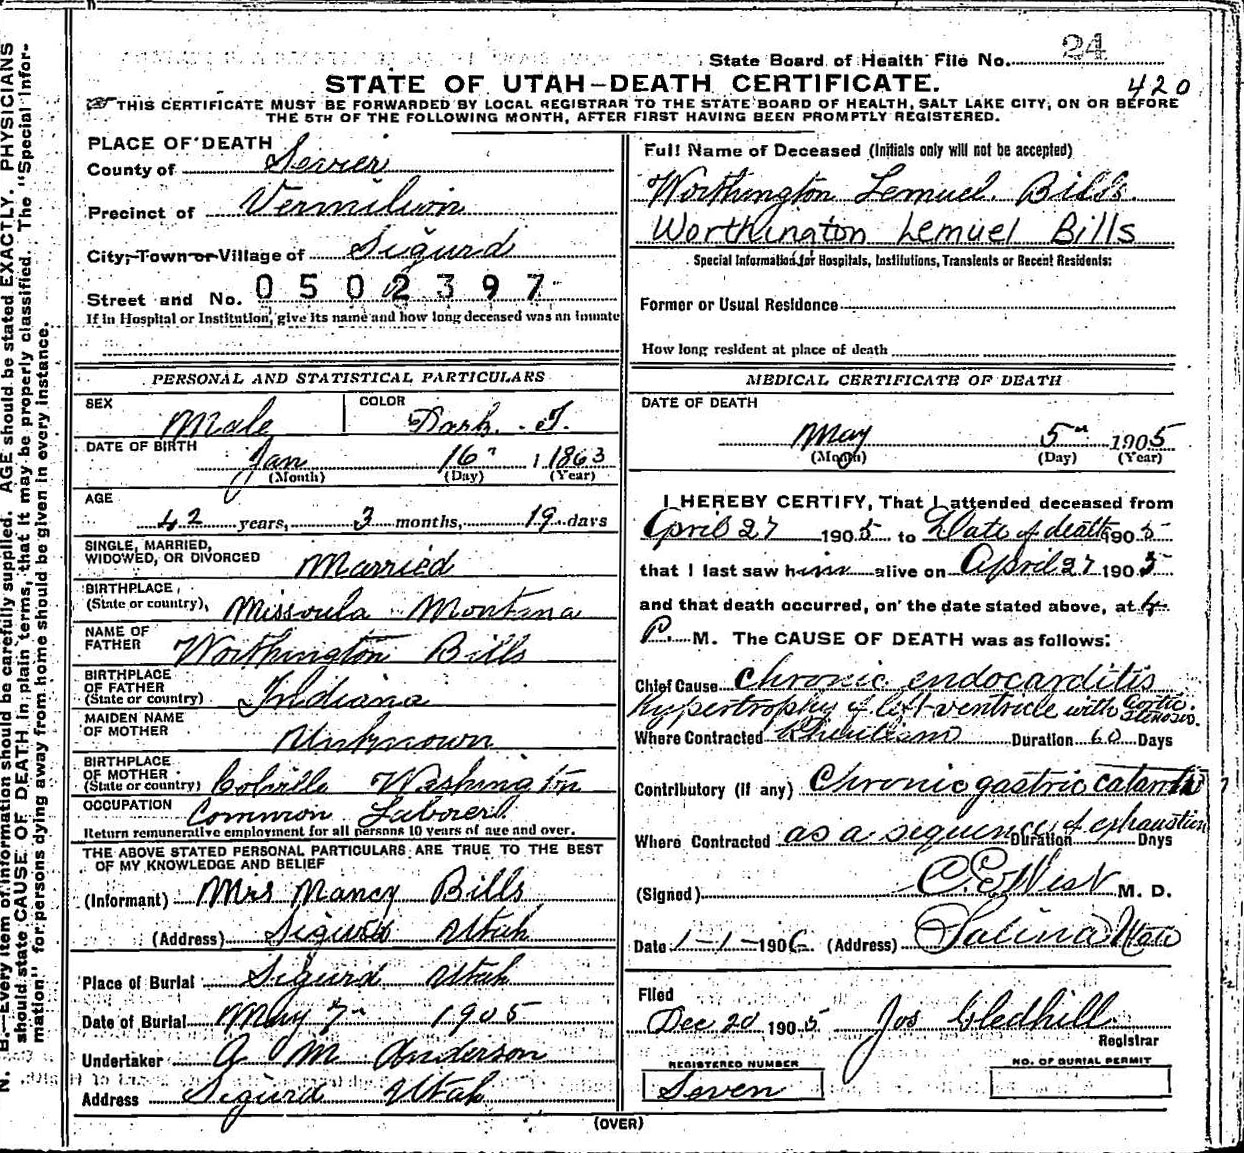 State Board of Health File No. 24
STATE OF UTAH—DEATH CERTIFICATE. 420
THIS CERTIFICATE MUST BE FORWARDED BY LOCAL REGISTRAR TO THE STATE BOARD OF HEALTH, SALT LAKE CITY, ON OR BEFORE
THE 5TH OF THE FOLLOWING MONTH, AFTER FIRST HAVING BEEN PROMPTLY REGISTERED.
PLACE OF DEATH
County of Sevier
Precinct of Vermilion
City, Town or Village of Sigurd
Street and No. 0502397
If in Hospital or Institution, give its name and how long deceased was an inmate
PERSONAL AND STATISTICAL PARTICULARS
SEX COLOR
Male Dark.
DATE OF BIRTH
Jan 16 1863
(Month) (Day) (Year)
AGE
42 years, 3 months, 19 days
SINGLE, MARRIED,
WIDOWED, OR DIVORCED Married
BIRTHPLACE,
(State or country), Missoula Montina
NAME OF
FATHER Worthington Bills
BIRTHPLACE
OF FATHER
(State or country) Indiana
MAIDEN NAME
OF MOTHER Unknown
BIRTHPLACE
OF MOTHER
(State or country) Colville Washington
OCCUPATION Common Laborer
Return remunerative employment for all persons 10 years of age and over.
THE ABOVE STATED PERSONAL PARTICULARS ARE TRUE TO THE BEST
OF MY KNOWLEDGE AND BELIEF
(Informant) Mrs Nancy Bills
(Address) Sigurd Utah
Place of Burial Sigurd Utah
Date of Burial May 7 1905
Undertaker A M Anderson
Address Sigurd Utah
Full Name of Deceased (Initials only will not be accepted)
Worthington Lemuel Bills.
Worthington Lemuel Bills
Special Information for Hospitals, Institutions, Transients or Recent Residents:
Former or Usual Residence
How long resident at place of death
MEDICAL CERTIFICATE OF DEATH
DATE OF DEATH
May 5th 1905
(Month) (Day) (Year)
I HEREBY CERTIFY, That I attended deceased from
April 27 1905 to Date of death 1905
that I last saw him alive on April 27 1905
and that death occurred, on the date stated above, at 4
P. M. The CAUSE OF DEATH was as follows:
Chief Cause Chronic endocarditis
hypertrophy of left ventricle with aortic stenosis.
Where Contracted Duration 60 Days
Contributory (if any) Chronic gastric catarrh
Where Contracted as a sequence of exhaustion Duration Days
(Signed) C. E. West M. D.
Date 1-1-1906 (Address) Salina Utah
Filed
Dec 20 1905 Jos Gledhill
Registrar
REGISTERED NUMBER NO. OF BURIAL PERMIT
Seven
(OVER)
N. B.—Every item of information should be carefully supplied. AGE should be stated EXACTLY. PHYSICIANS
should state CAUSE OF DEATH in plain terms, that it may be properly classified. The "Special Infor-
mation" for persons dying away from home should be given in every instance.